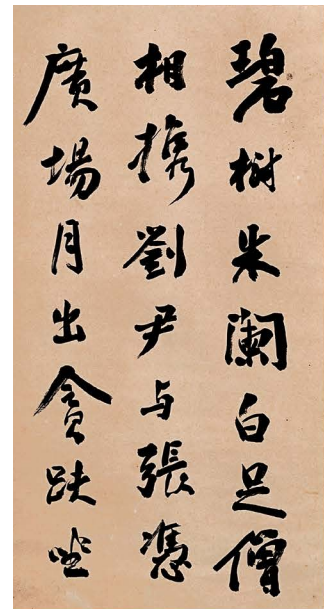 碧樹朱闌白足僧
相携劉尹与張憑
廣場月出貪趺坐